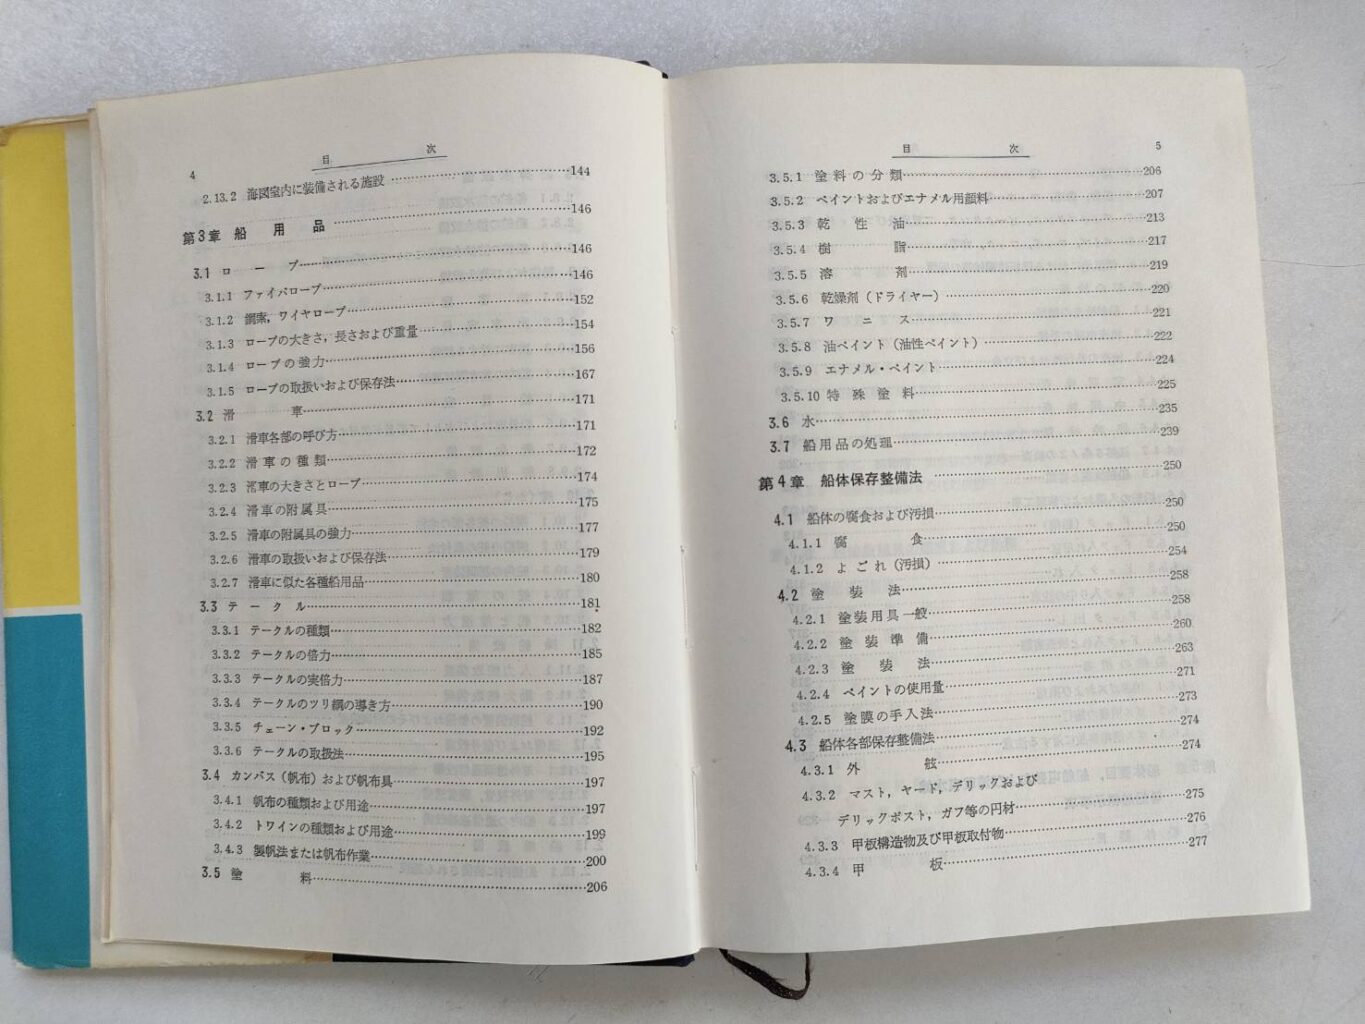 4 目 次
2.13.2 海図室内に装備される施設 144
第3章 船用品 146
3.1 ロープ 146
3.1.1 ファイバロープ 146
3.1.2 鋼索，ワイヤロープ 152
3.1.3 ロープの大きさ，長さおよび重量 154
3.1.4 ロープの強力 156
3.1.5 ロープの取扱いおよび保存法 167
3.2 滑車 171
3.2.1 滑車各部の呼び方 171
3.2.2 滑車の種類 172
3.2.3 滑車の大きさとロープ 174
3.2.4 滑車の附属具 175
3.2.5 滑車の附属具の強力 177
3.2.6 滑車の取扱いおよび保存法 179
3.2.7 滑車に似た各種船用品 180
3.3 テークル 181
3.3.1 テークルの種類 182
3.3.2 テークルの倍力 185
3.3.3 テークルの実倍力 187
3.3.4 テークルのツリ綱の導き方 190
3.3.5 チェーン・ブロック 192
3.3.6 テークルの取扱法 195
3.4 カンバス（帆布）および帆布具 197
3.4.1 帆布の種類および用途 197
3.4.2 トワインの種類および用途 199
3.4.3 製帆法または帆布作業 200
3.5 塗料 206
目 次 5
3.5.1 塗料の分類 206
3.5.2 ペイントおよびエナメル用顔料 207
3.5.3 乾性油 213
3.5.4 樹脂 217
3.5.5 溶剤 219
3.5.6 乾燥剤（ドライヤー） 220
3.5.7 ワニス 221
3.5.8 油ペイント（油性ペイント） 222
3.5.9 エナメル・ペイント 224
3.5.10 特殊塗料 225
3.6 水 235
3.7 船用品の処理 239
第4章 船体保存整備法 250
4.1 船体の腐食および汚損 250
4.1.1 腐食 250
4.1.2 よごれ（汚損） 254
4.2 塗装法 258
4.2.1 塗装用具一般 258
4.2.2 塗装準備 260
4.2.3 塗装法 263
4.2.4 ペイントの使用量 271
4.2.5 塗膜の手入法 273
4.3 船体各部保存整備法 274
4.3.1 外舷 274
4.3.2 マスト，ヤード，デリックおよび
デリックポスト，ガフ等の円材 275
4.3.3 甲板構造物及び甲板取付物 276
4.3.4 甲板 277